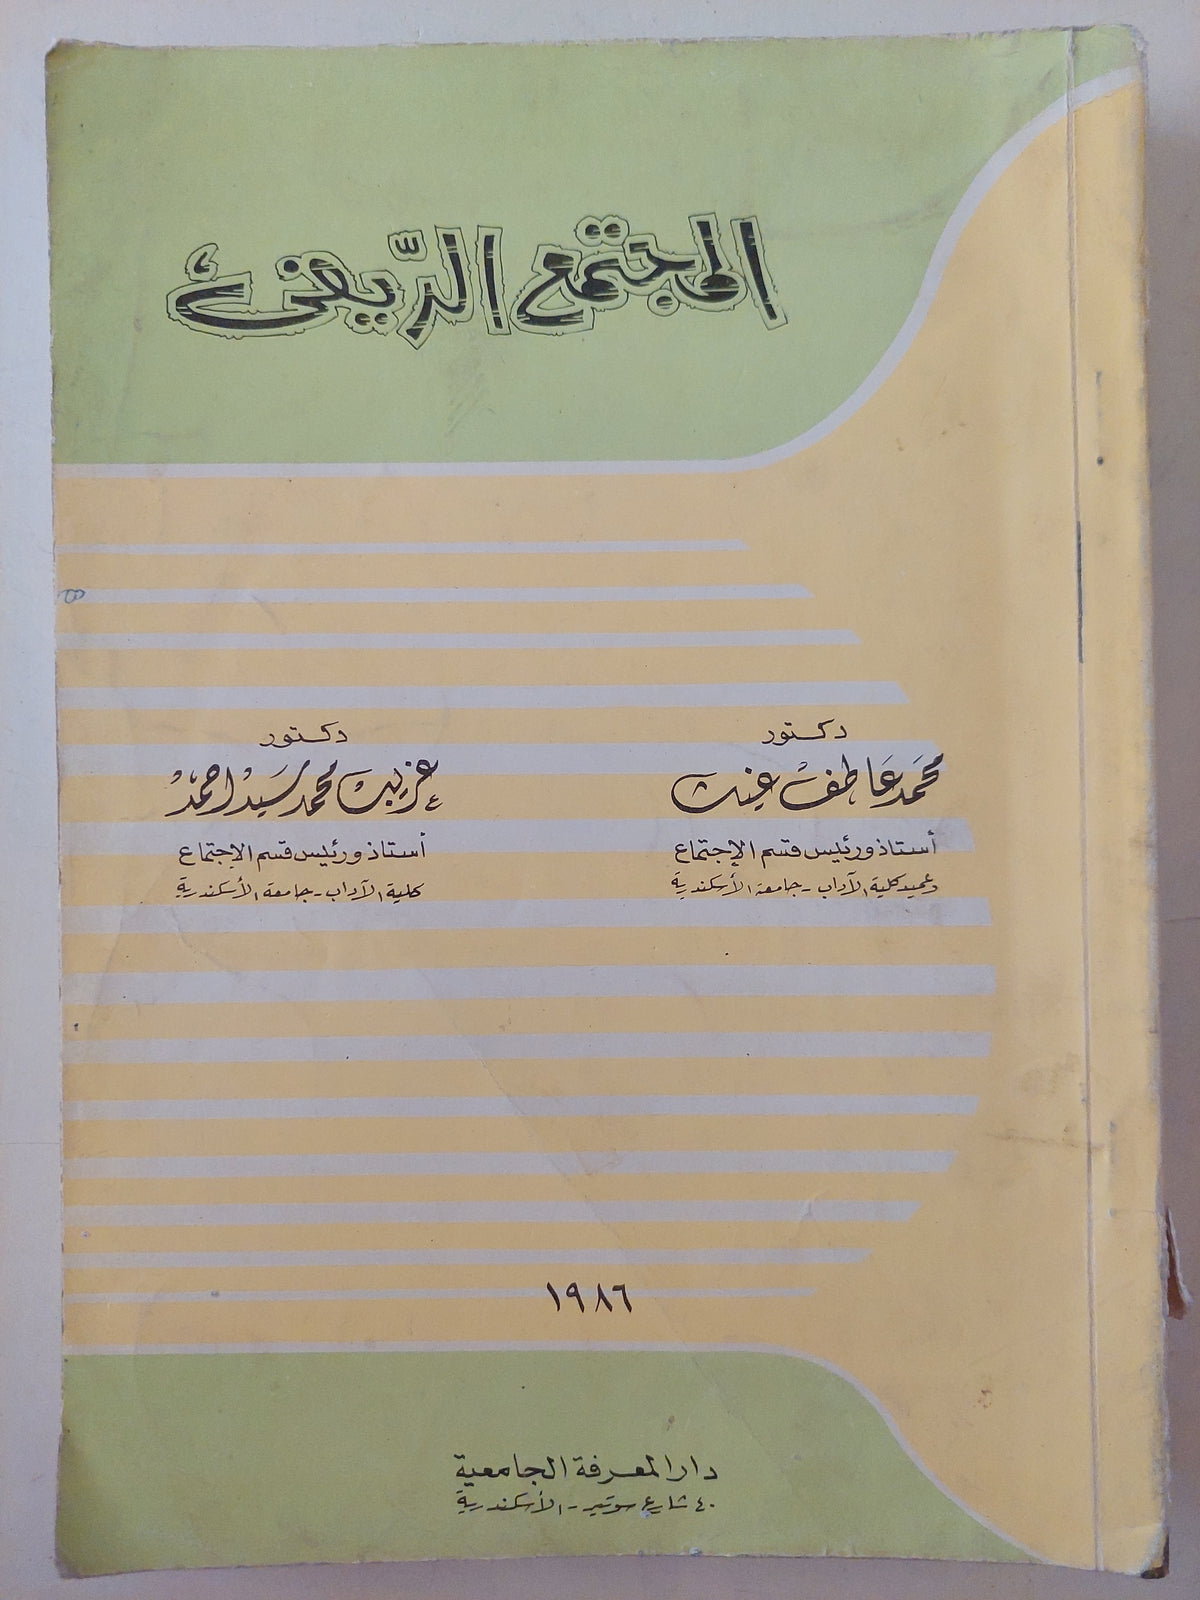 المجتمع الريفي
دكتور
محمد عاطف غيث
أستاذ ورئيس قسم الإجتماع
وعميد كلية الآداب - جامعة الأسكندرية
دكتور
غريب محمد سيد احمد
أستاذ ورئيس قسم الإجتماع
كلية الآداب - جامعة الأسكندرية
١٩٨٦
دار المعرفة الجامعية
٤٠ شارع سوتير - الأسكندرية